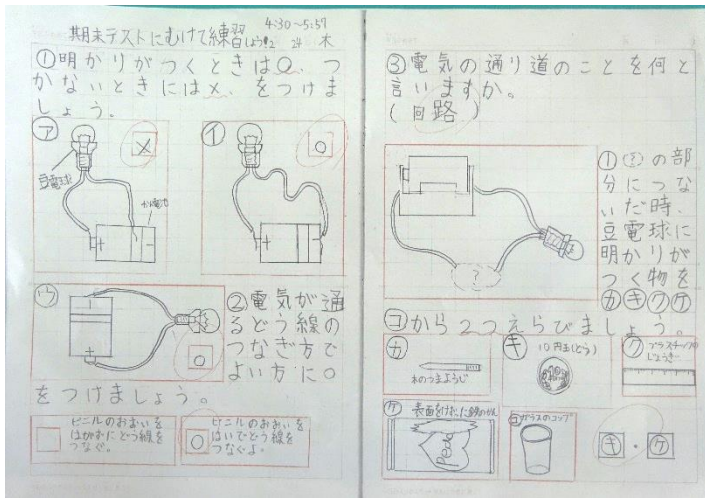 4:30~5:57
期末テストにむけて練習
24 木
①明かりがつくときは○、つ
かないときには×、をつけま
しょう。
ア
×
豆電球
+
-
イ
○
+
-
ウ
-
+
○
②電気が通
るどう線の
つなぎ方で
よい方に○
をつけましょう。
ビニルのおおいを
はがさにどう線を
つなぐ。
○
ビニルのおおいを
はいでどう線を
つなぐよ。
③電気の通り道のことを何と
言いますか。
(回路)
?
①?の部
分につな
いだ時、
豆電球に
明かりが
つく物を
カキクケ
コから2つえらびましょう。
カ
木のつまようじ
キ
10円玉(どう)
ク
プラスチックの
じょうぎ
ケ
表面をけずった鉄のかん
コ
ガラスのコップ
キ・ケ